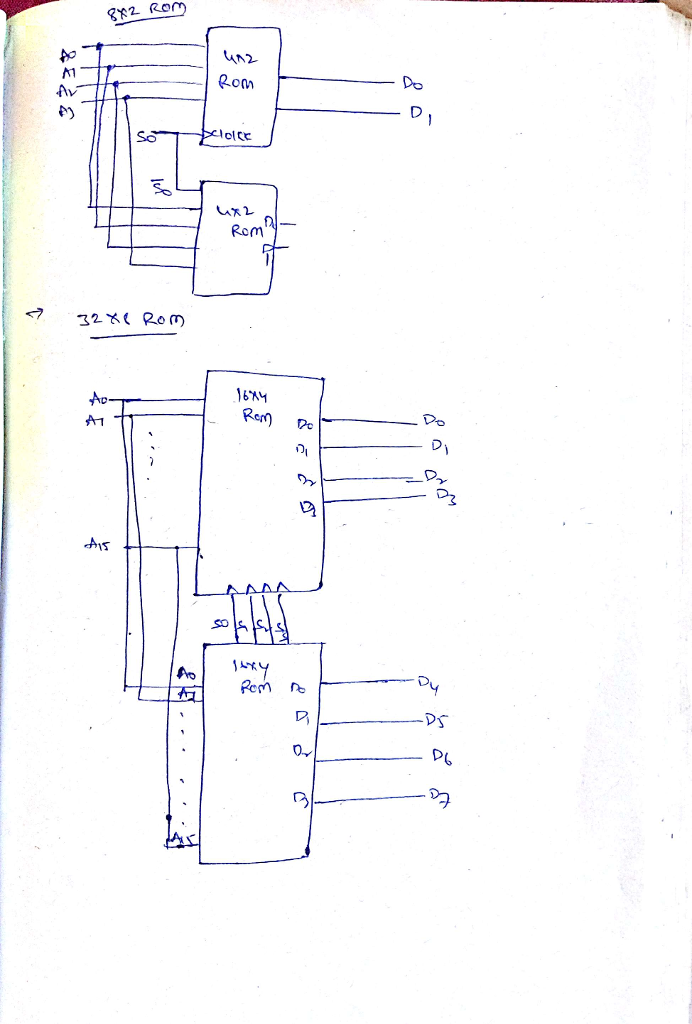 8x2 ROM
A0
A1
A2
A3
4x2
ROM
D0
D1
S0
clock
S̄0
4x2
ROM
D0
D1
→ 32x8 ROM
16x4
ROM
A0
A1
A15
D0
D1
D2
D3
D0
D1
D2
D3
S0 S1 S2 S3
16x4
ROM
A0
A1
A15
D0
D1
D2
D3
D4
D5
D6
D7